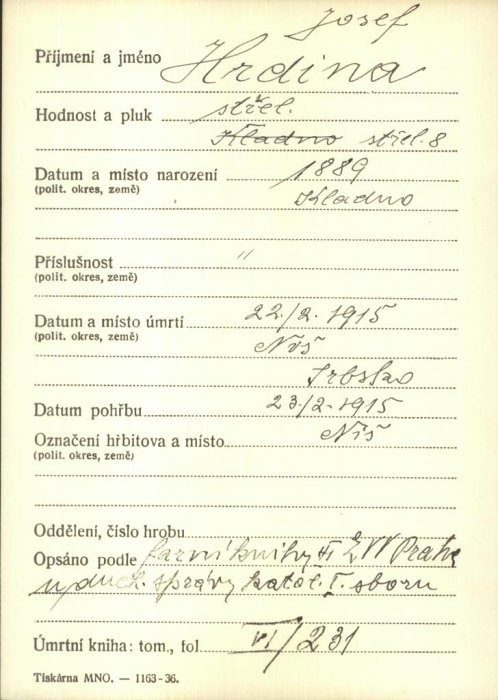 Josef
Příjmení a jméno Hrdina
Hodnost a pluk střel.
Kladno střel. 8
Datum a místo narození 1889
(polit. okres, země) Kladno
Příslušnost "
(polit. okres, země)
Datum a místo úmrtí 22./2. 1915
(polit. okres, země) Niš
Srbsko
Datum pohřbu 23/2. 1915
Označení hřbitova a místo Niš
(polit. okres, země)
Oddělení, číslo hrobu
Opsáno podle farní knihy ZVV Praha
duch. správy katol. I. sboru
Úmrtní kniha: tom., fol VI/231
Tiskárna MNO. — 1163-36.